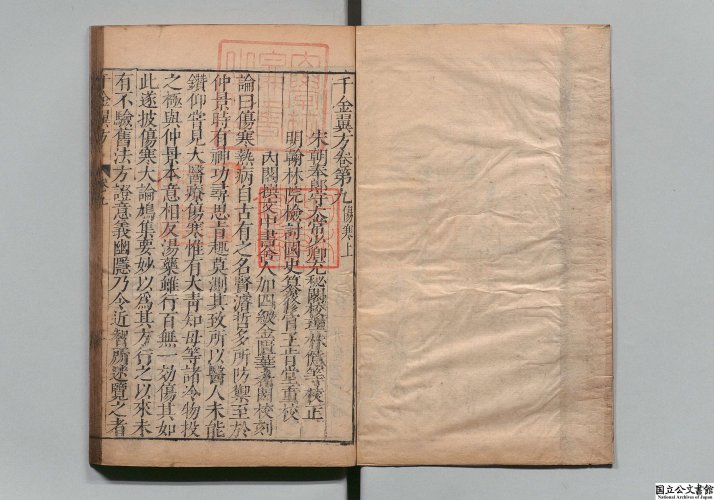 千金翼方卷第九 傷寒上
宋朝奉郎守太常少卿充秘閣校理林億等校正
明翰林院檢討國史纂修官王肯堂重校
內閣撰文中書舍人加四級金匱華希閎校刻
論曰傷寒熱病自古有之名賢濬哲多所防禦至於
仲景特有神功尋思旨趣莫測其致所以醫人未能
鑽仰嘗見大醫療傷寒惟有大青知母等諸冷物投
之極與仲景本意相反湯藥雖行百無一効傷其如
此遂披傷寒大論鳩集要妙以爲其方行之以來未
有不驗舊法方證意義幽隱乃令近智所迷覽之者
千金翼方 卷九
国立公文書館
National Archives of Japan